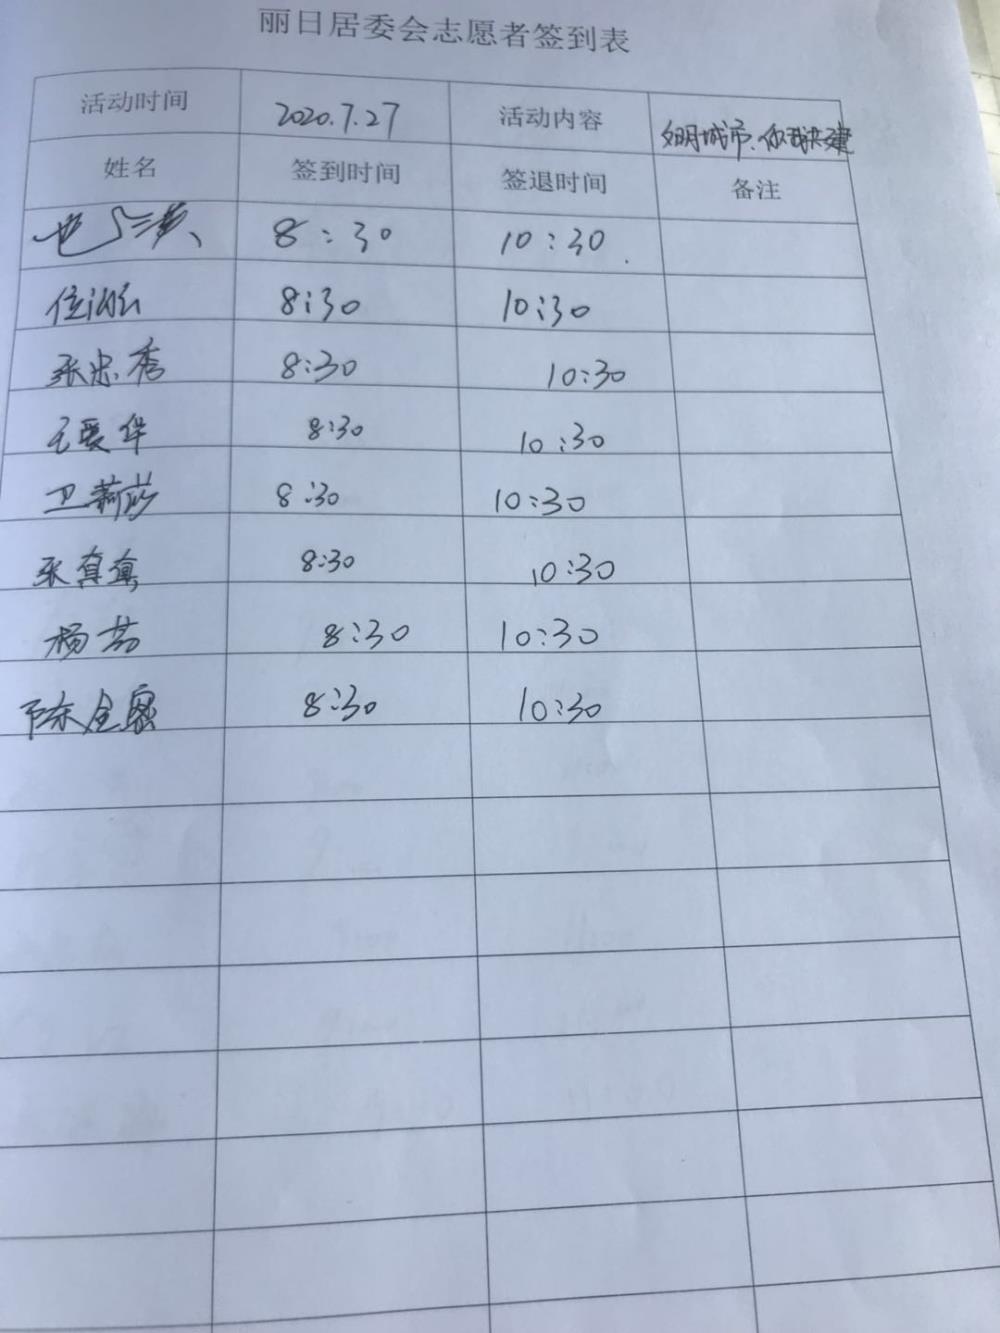 丽日居委会志愿者签到表
活动时间 2020.7.27 活动内容 文明城市、你我共建
姓名 签到时间 签退时间 备注
8:30 10:30
8:30 10:30
张忠秀 8:30 10:30
王爱华 8:30 10:30
卫莉莎 8:30 10:30
张真真 8:30 10:30
杨芳 8:30 10:30
陈全家 8:30 10:30